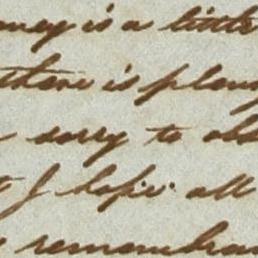 is a little
there is plen
sorry to
I hope all
remembran